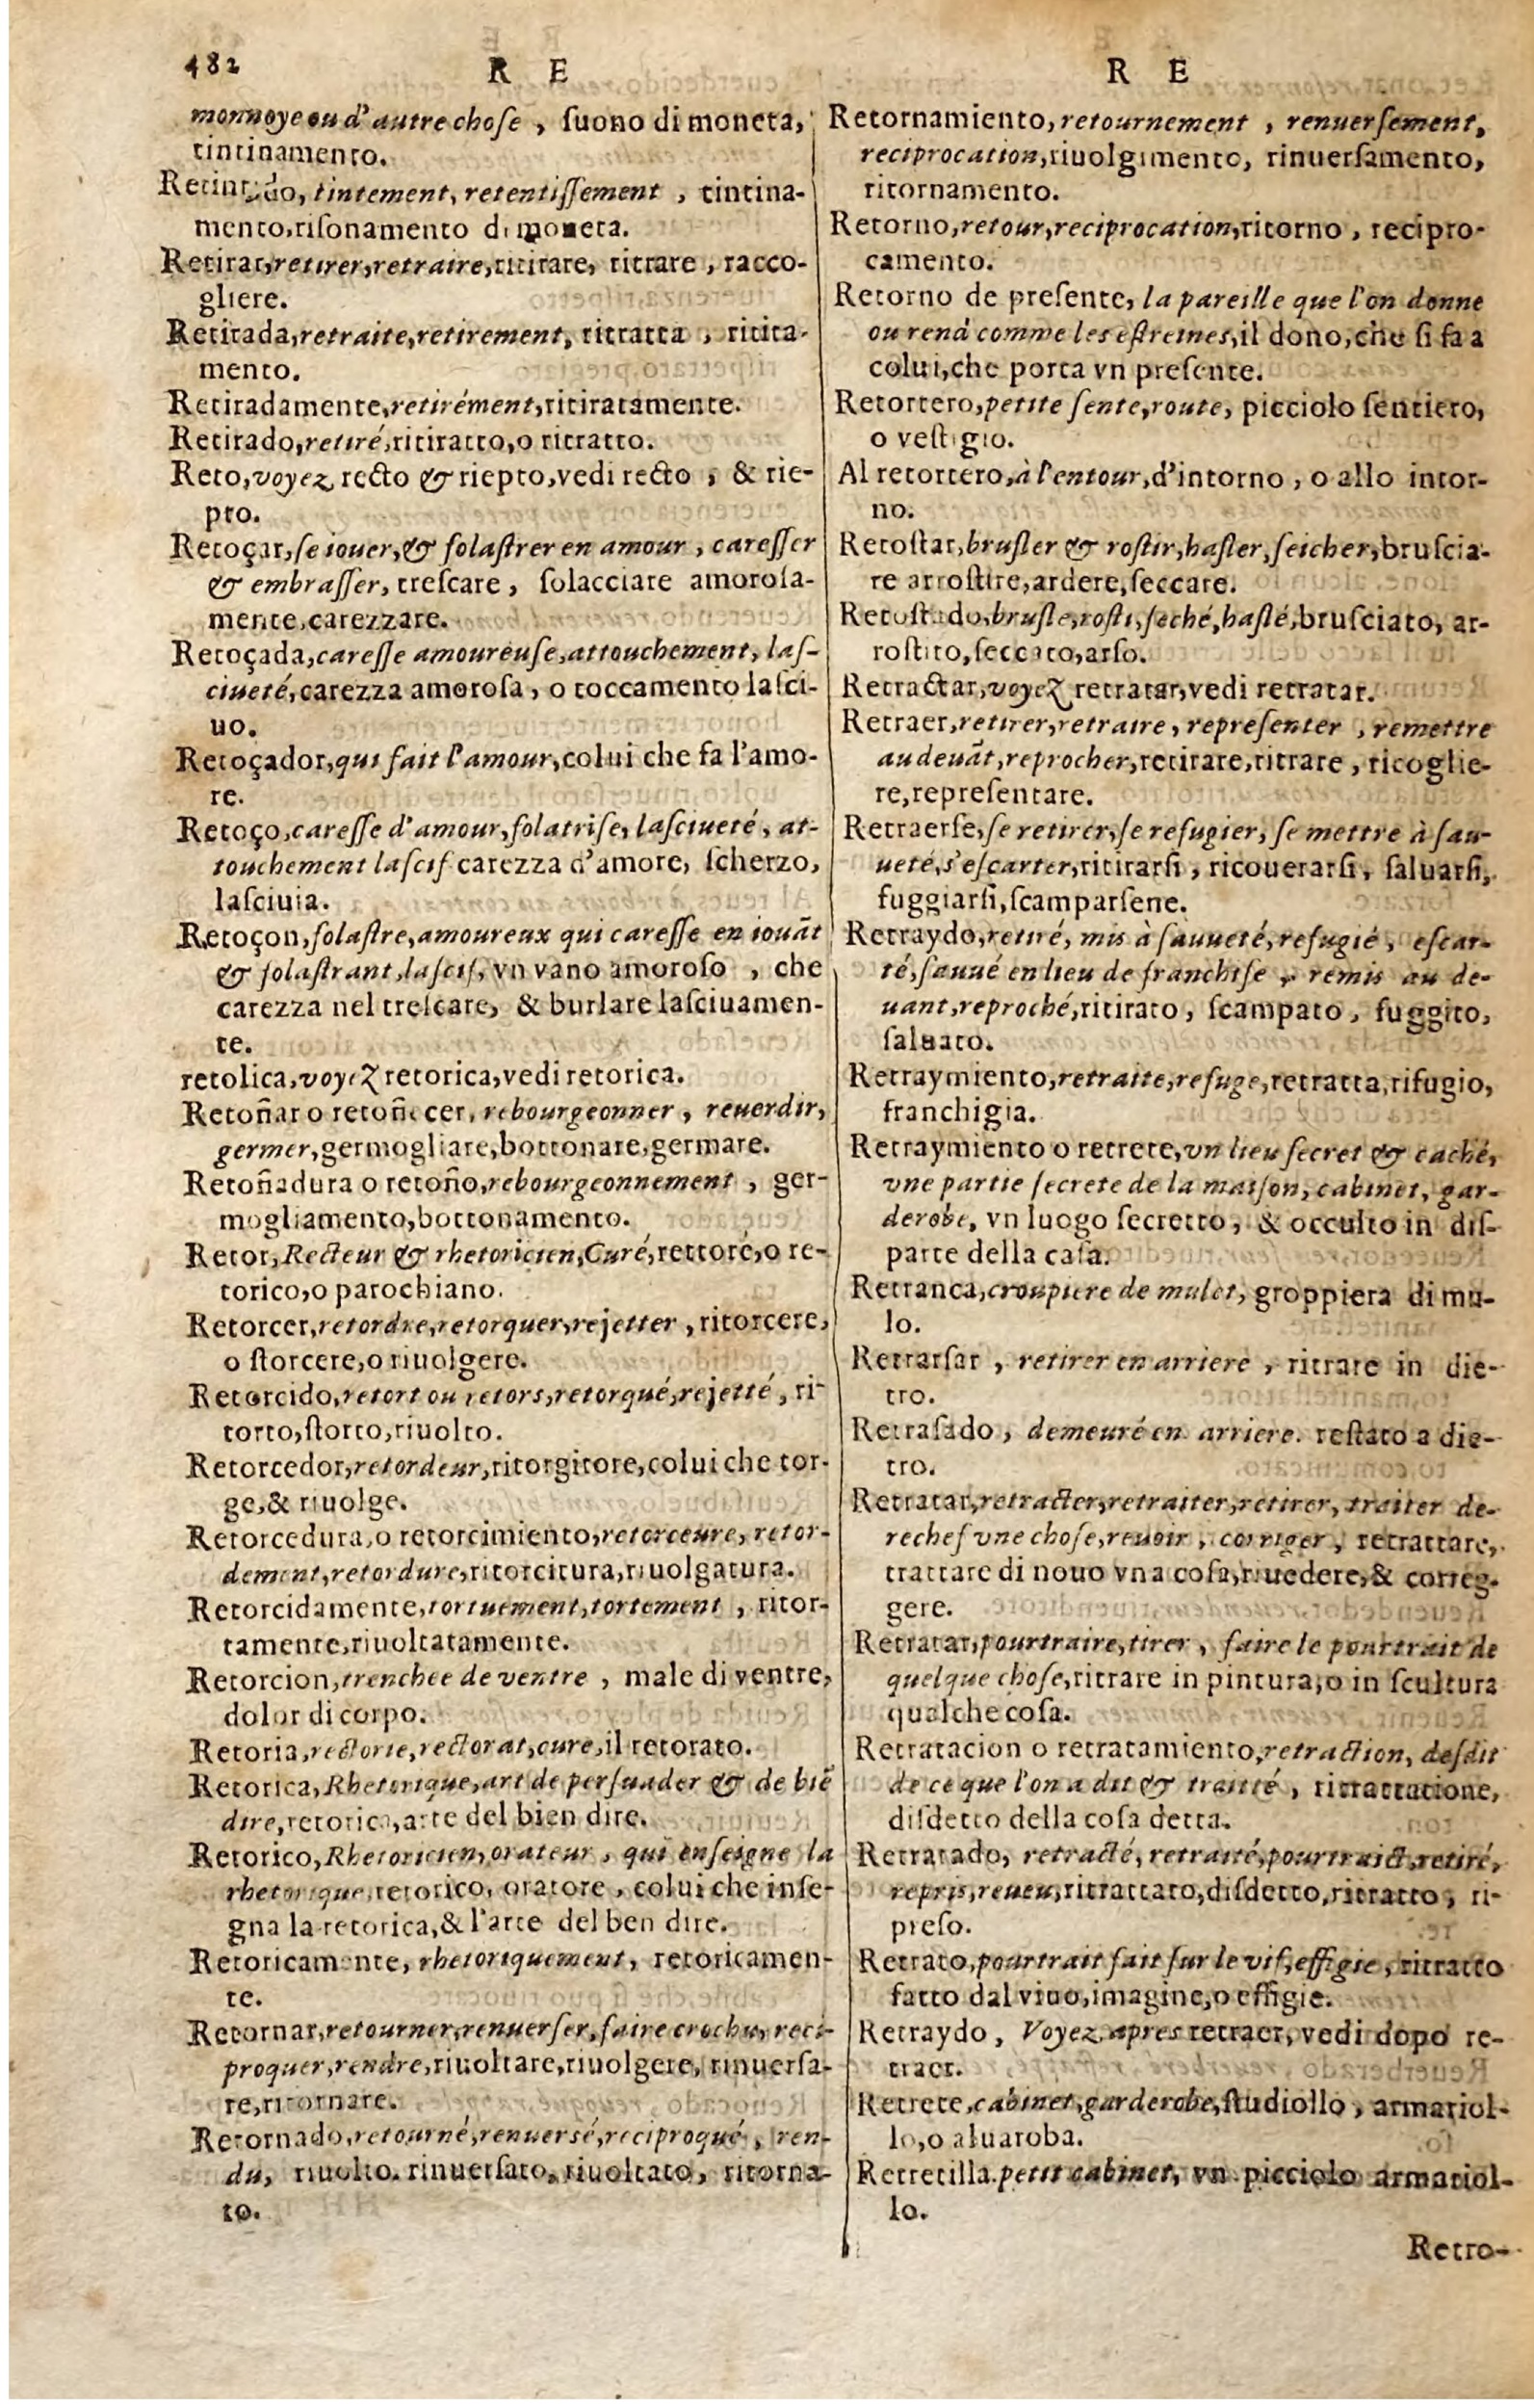 482
R E
monnoye ou d'autre chose, suono di moneta,
tintinamento.
Retintido, tintement, retentissement, tintina-
mento, risonamento di moneta.
Retirar, retirer, retraire, ritirare, ritrare, racco-
gliere.
Retirada, retraite, retirement, ritratta, ritira-
mento.
Retiradamente, retirément, ritiratamente.
Retirado, retiré, ritiratto, o ritratto.
Reto, voyez recto & riepto, vedi recto, & rie-
pto.
Retoçar, se iouer, & folastrer en amour, caresser
& embrasser, trescare, solacciare amorosa-
mente, carezzare.
Retoçada, caresse amoureuse, attouchement, las-
ciueté, carezza amorosa, o toccamento lasci-
uo.
Retoçador, qui fait l'amour, colui che fa l'amo-
re.
Retoço, caresse d'amour, folatrise, lasciueté, at-
touchement lascif carezza d'amore, scherzo,
lasciuia.
Retoçon, folastre, amoureux qui caresse en iouãt
& folastrant, lascif, vn vano amoroso, che
carezza nel trescare, & burlare lasciuamen-
te.
retolica, voyez retorica, vedi retorica.
Retoñar o retoñecer, rebourgeonner, reuerdir,
germer, germogliare, bottonare, germare.
Retoñadura o retoño, rebourgeonnement, ger-
mogliamento, bottonamento.
Retor, Recteur & rhetoricien, Curé, rettore, o re-
torico, o parochiano.
Retorcer, retordre, retorquer, rejetter, ritorcere,
o storcere, o riuolgere.
Retorcido, retort ou retors, retorqué, rejetté, ri-
torto, storto, riuolto.
Retorcedor, retordeur, ritorgitore, colui che tor-
ge, & riuolge.
Retorcedura, o retorcimiento, retorceure, retor-
dement, retordure, ritorcitura, riuolgatura.
Retorcidamente, tortuement, tortement, ritor-
tamente, riuoltatamente.
Retorcion, trenchee de ventre, male di ventre,
dolor di corpo.
Retoria, rectorie, rectorat, cure, il retorato.
Retorica, Rhetorique, art de persuader & de biẽ
dire, retorica, arte del bien dire.
Retorico, Rhetoricien, orateur, qui enseigne la
rhetorique, retorico, oratore, colui che inse-
gna la retorica, & l'arte del ben dire.
Retoricamente, rhetoriquement, retoricamen-
te.
Retornar, retourner, renuerser, faire crochu, reci-
proquer, rendre, riuoltare, riuolgere, rinuersa-
re, ritornare.
Retornado, retourné, renuersé, reciproqué, ren-
du, riuolto, rinuersato, riuoltato, ritorna-
to.
R E
Retornamiento, retournement, renuersement,
reciprocation, riuolgimento, rinuersamento,
ritornamento.
Retorno, retour, reciprocation, ritorno, recipro-
camento.
Retorno de presente, la pareille que l'on donne
ou rend comme les estreines, il dono, che si fa a
colui, che porta vn presente.
Retortero, petite sente, route, picciolo sentiero,
o vestigio.
Al retortero, à l'entour, d'intorno, o allo intor-
no.
Retostar, brusler & rostir, hasler, seicher, bruscia-
re arrostire, ardere, seccare.
Retostado, brusle, rosti, seché, haslé, brusciato, ar-
rostito, seccato, arso.
Retractar, voyez retratar, vedi retratar.
Retraer, retirer, retraire, representer, remettre
au deuãt, reprocher, retirare, ritrare, ricoglie-
re, representare.
Retraerse, se retirer, se refugier, se mettre à sau-
ueté, s'escarter, ritirarsi, ricouerarsi, saluarsi,
fuggiarsi, scamparsene.
Retraydo, retiré, mis à sauueté, refugié, escar-
té, sauué en lieu de franchise, remis au de-
uant, reproché, ritirato, scampato, fuggito,
saluato.
Retraymiento, retraite, refuge, retratta, rifugio,
franchigia.
Retraymiento o retrete, vn lieu secret & caché,
vne partie secrete de la maison, cabinet, gar-
derobe, vn luogo secretto, & occulto in dis-
parte della casa.
Retranca, croupiere de mulet, groppiera di mu-
lo.
Retrarsar, retirer en arriere, ritrare in die-
tro.
Retrasado, demeuré en arriere. restato a die-
tro.
Retratar, retracter, retraiter, retirer, traiter de-
rechef vne chose, reuoir, corriger, retrattare,
trattare di nouo vna cosa, riuedere, & correg-
gere.
Retratar, pourtraire, tirer, faire le pourtrait de
quelque chose, ritrare in pintura, o in scultura
qualche cosa.
Retratacion o retratamiento, retraction, desdit
de ce que l'on a dit & traitté, ritrattatione,
disdetto della cosa detta.
Retratado, retracté, retraité, pourtraict, retiré,
repris, reueu, ritrattato, disdetto, ritratto, ri-
preso.
Retrato, pourtrait fait sur le vif, effigie, ritratto
fatto dal viuo, imagine, o effigie.
Retraydo, Voyez apres retraer, vedi dopo re-
traer.
Retrete, cabinet, garderobe, studiollo, armariol-
lo, o aluaroba.
Retretilla. petit cabinet, vn picciolo armariol-
lo.
Retro-